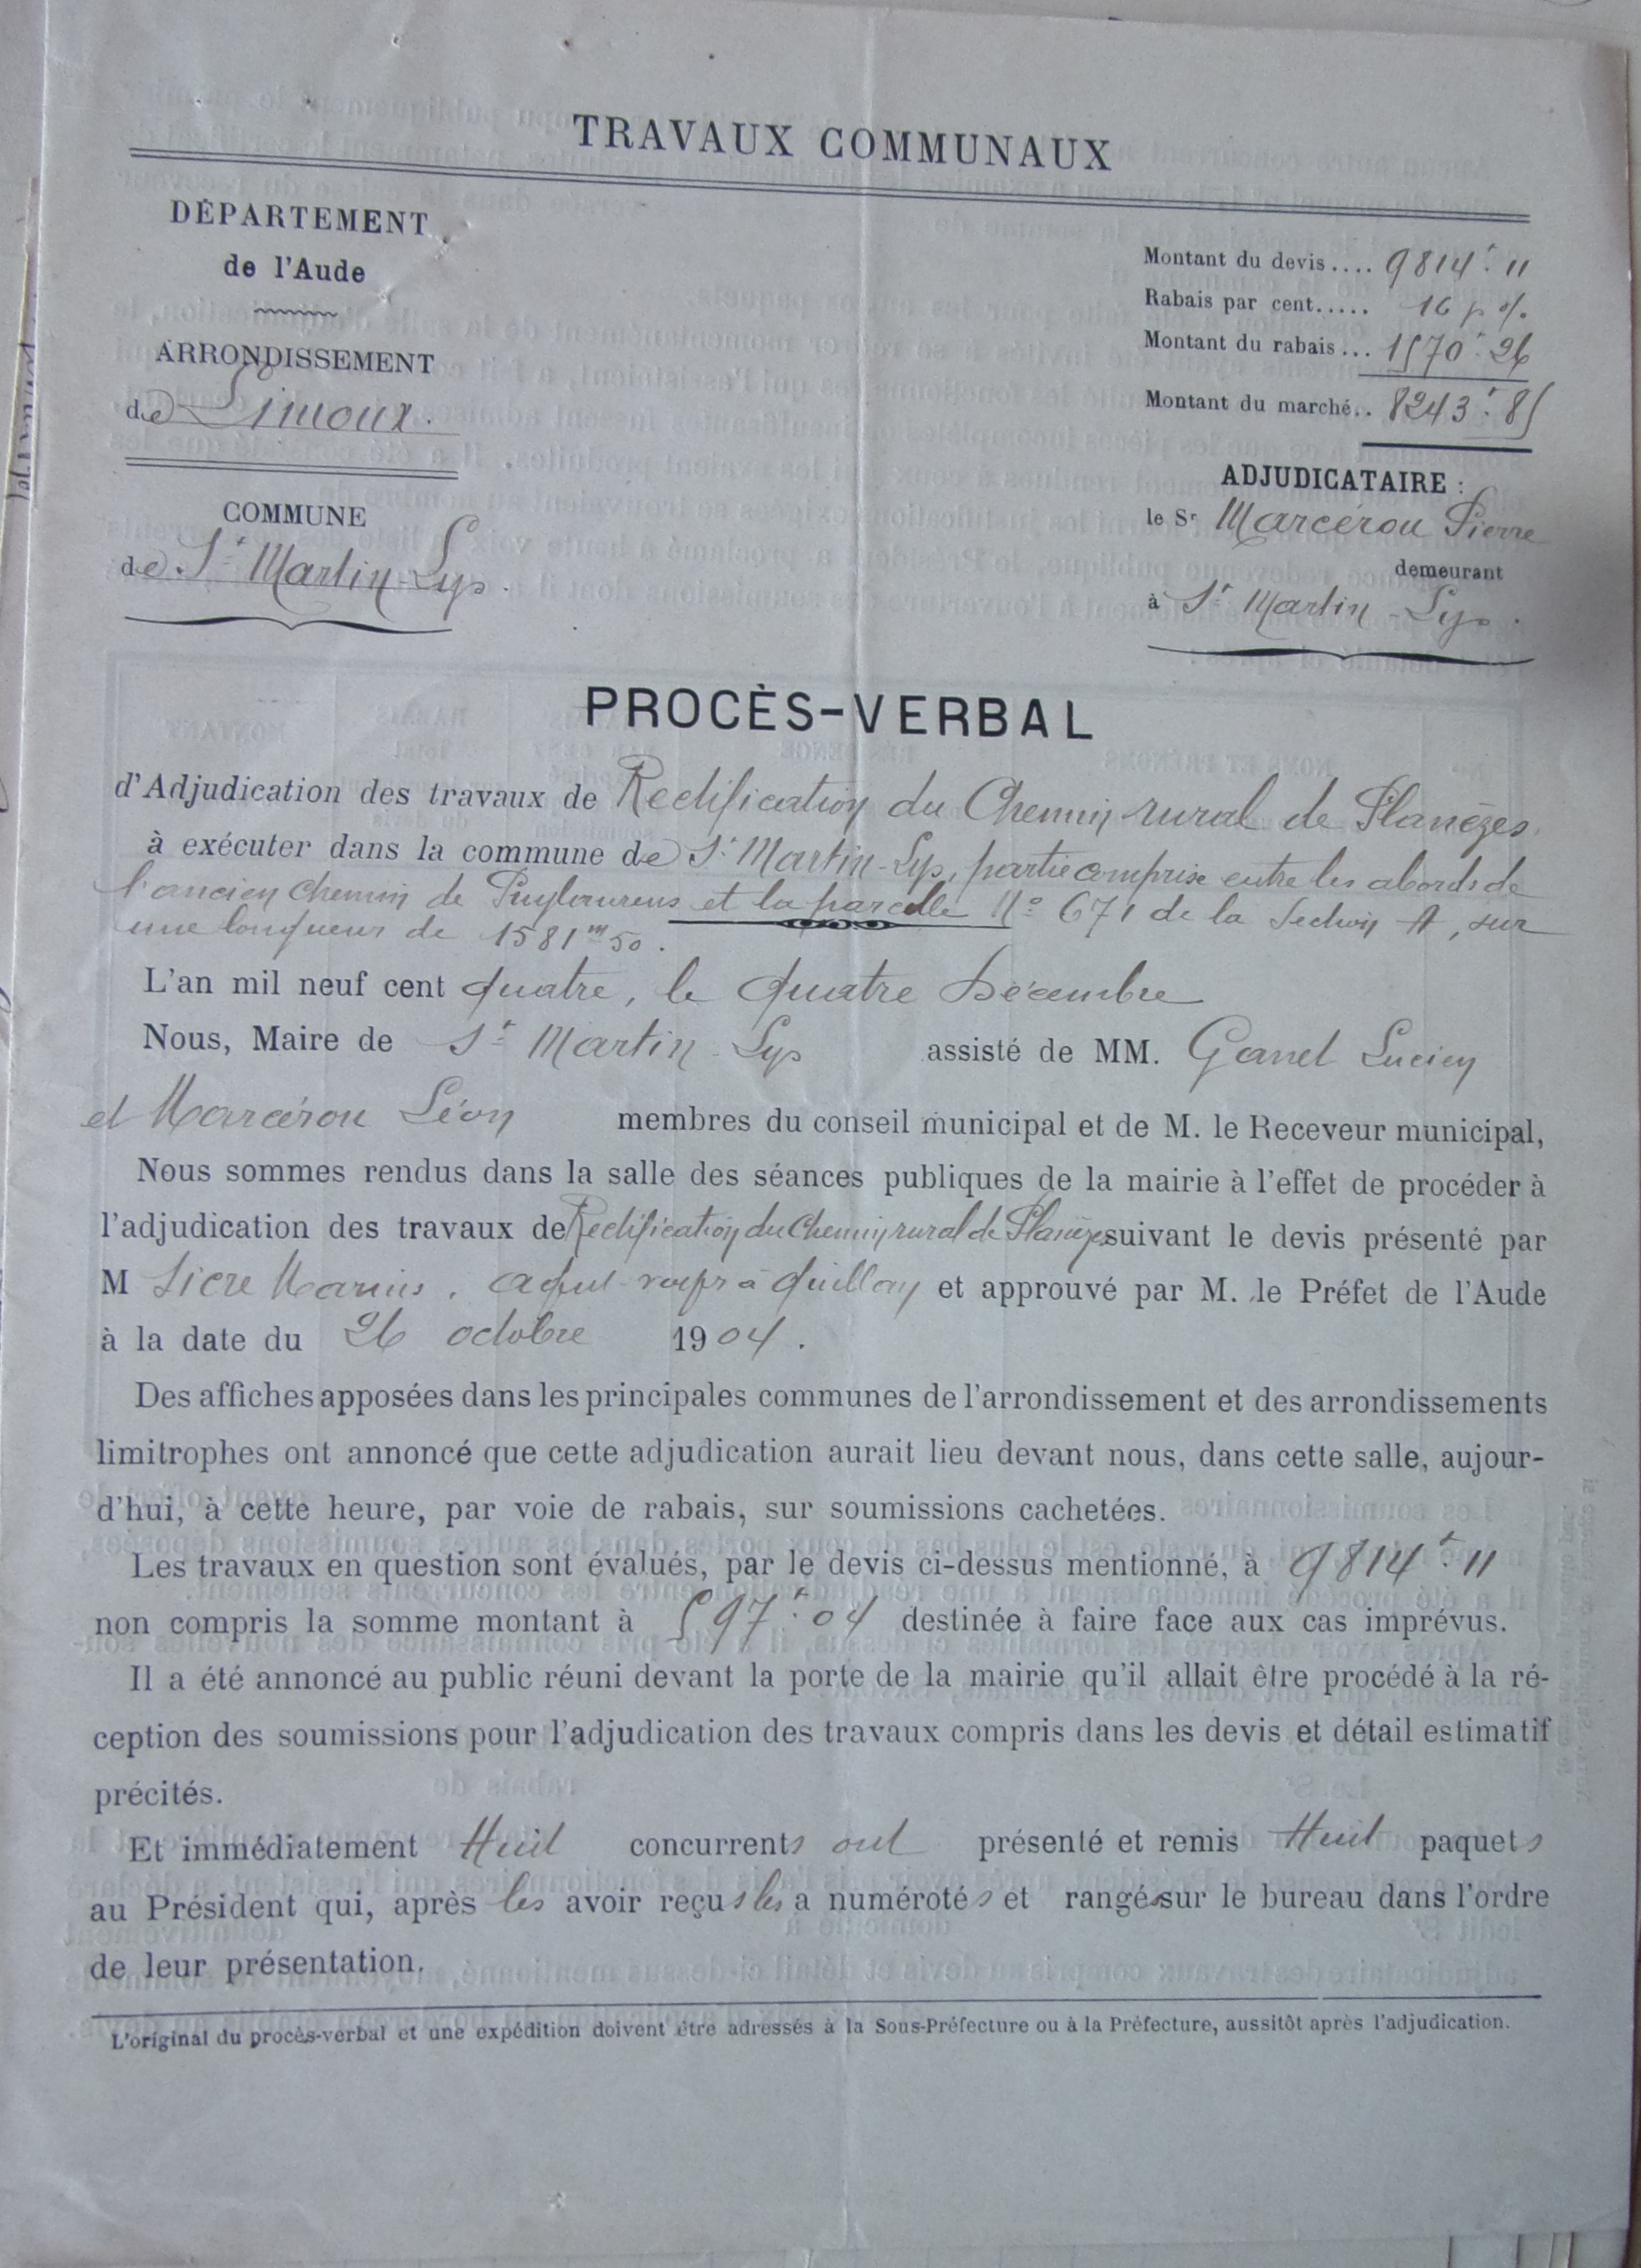 TRAVAUX COMMUNAUX
DÉPARTEMENT
de l'Aude
ARRONDISSEMENT
de Limoux.
COMMUNE
de St Martin-Lys.
Montant du devis.... 9814f.11
Rabais par cent..... 16 p %.
Montant du rabais... 1570f.26
Montant du marché.. 8243f.85
ADJUDICATAIRE :
le Sr Marcérou Pierre
demeurant
à St Martin-Lys.
PROCÈS-VERBAL
d'Adjudication des travaux de Rectification du Chemin rural de Planèzes
à exécuter dans la commune de St Martin-Lys, partie comprise entre les abords de
l'ancien chemin de Puylaurens et la parcelle No 671 de la Section A, sur
une longueur de 1581m50.
L'an mil neuf cent quatre, le quatre Décembre
Nous, Maire de St Martin-Lys assisté de MM. Lucien
et Marcérou Léon membres du conseil municipal et de M. le Receveur municipal,
Nous sommes rendus dans la salle des séances publiques de la mairie à l'effet de procéder à
l'adjudication des travaux de Rectification du Chemin rural de Planèzes suivant le devis présenté par
M Sicre Marius, à Quillan et approuvé par M. le Préfet de l'Aude
à la date du 26 octobre 1904.
Des affiches apposées dans les principales communes de l'arrondissement et des arrondissements
limitrophes ont annoncé que cette adjudication aurait lieu devant nous, dans cette salle, aujour-
d'hui, à cette heure, par voie de rabais, sur soumissions cachetées.
Les travaux en question sont évalués, par le devis ci-dessus mentionné, à 9814f.11
non compris la somme montant à 597f.04 destinée à faire face aux cas imprévus.
Il a été annoncé au public réuni devant la porte de la mairie qu'il allait être procédé à la ré-
ception des soumissions pour l'adjudication des travaux compris dans les devis et détail estimatif
précités.
Et immédiatement Huit concurrents ont présenté et remis Huit paquets
au Président qui, après les avoir reçus les a numérotés et rangés sur le bureau dans l'ordre
de leur présentation.
L'original du procès-verbal et une expédition doivent être adressés à la Sous-Préfecture ou à la Préfecture, aussitôt après l'adjudication.